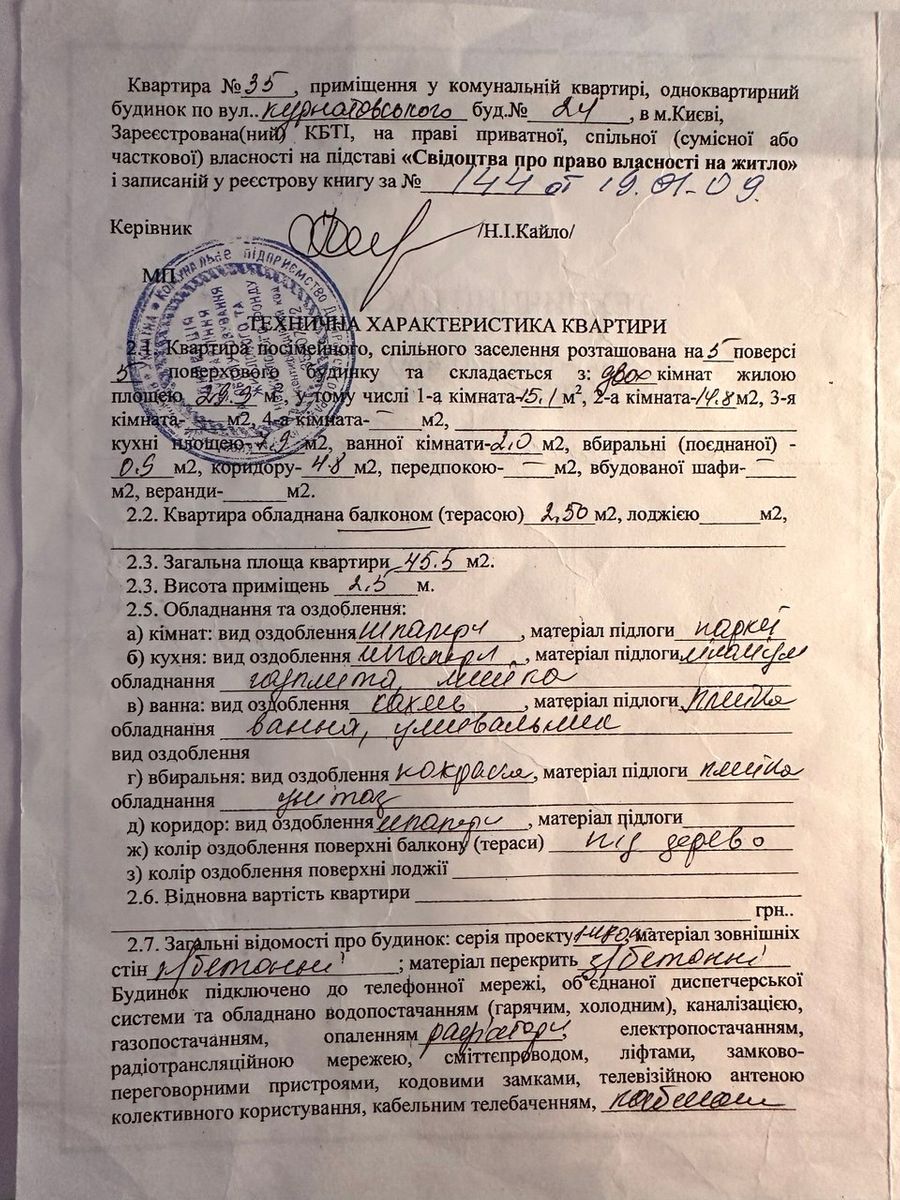 Квартира №35, приміщення у комунальній квартирі, одноквартирний
будинок по вул..курнатовського буд.№ 24, в м.Києві,
Зареєстрована(ний) КБТІ, на праві приватної, спільної (сумісної або
часткової) власності на підставі «Свідоцтва про право власності на житло»
і записаній у реєстрову книгу за № 144 от 19.01-09.
Керівник /Н.І.Кайло/
МП
ТЕХНИЧНА ХАРАКТЕРИСТИКА КВАРТИРИ
2.1. Квартира посімейного, спільного заселення розташована на 5 поверсі
5 поверхового будинку та складається з: двох кімнат жилою
площею 29.9 м², у тому числі 1-а кімната-15.1 м², 2-а кімната-14.8м2, 3-я
кімната-____ м2, 4-а кімната-____м2,
кухні площею-7.9 м2, ванної кімнати-2.0 м2, вбиральні (поєднаної) -
0.9 м2, коридору- 4.8 м2, передпокою- — м2, вбудованої шафи- —
м2, веранди-______м2.
2.2. Квартира обладнана балконом (терасою) 2,50 м2, лоджією______м2,
2.3. Загальна площа квартири 45.5 м2.
2.3. Висота приміщень 2.5 м.
2.5. Обладнання та оздоблення:
а) кімнат: вид оздоблення шпалери, матеріал підлоги паркет
б) кухня: вид оздоблення шпалери, матеріал підлоги лінолеум
обладнання газплита, мийка
в) ванна: вид оздоблення кахель, матеріал підлоги плитка
обладнання ванная, умивальник
вид оздоблення
г) вбиральня: вид оздоблення покраска, матеріал підлоги плитка
обладнання унітаз
д) коридор: вид оздоблення шпалери, матеріал підлоги______
ж) колір оздоблення поверхні балкону (тераси) під дерево
з) колір оздоблення поверхні лоджії
2.6. Відновна вартість квартири
грн..
2.7. Загальні відомості про будинок: серія проекту матеріал зовнішніх
стін з/бетонні ; матеріал перекрить з/бетонні
Будинок підключено до телефонної мережі, об"єднаної диспетчерської
системи та обладнано водопостачанням (гарячим, холодним), каналізацією,
газопостачанням, опаленням радіатори, електропостачанням,
радіотрансляційною мережею, сміттєпроводом, ліфтами, замково-
переговорними пристроями, кодовими замками, телевізійною антеною
колективного користування, кабельним телебаченням,